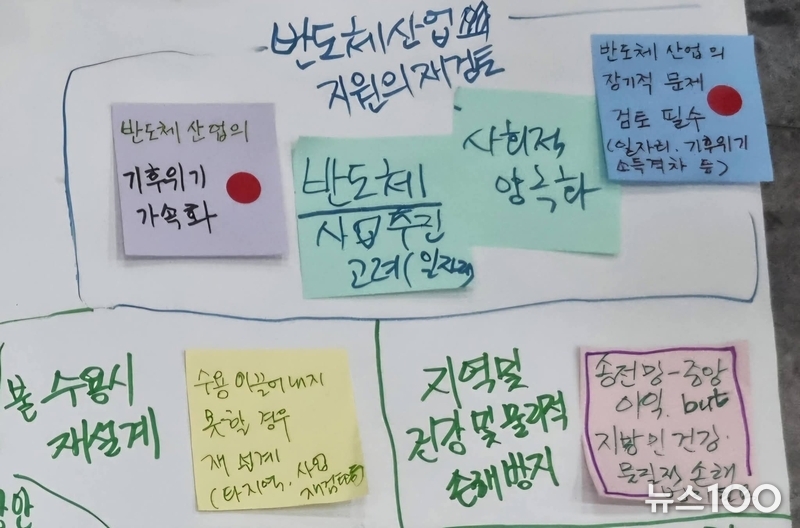 반도체산업
지원의 재검토
반도체 산업의
기후위기
가속화
반도체
사업추진
고려(일자리)
사회적
양극화
반도체 산업의
장기적 문제
검토 필수
(일자리, 기후위기
소득격차 등)
불수용시
재설계
수용 이끌어내지
못할 경우
재 설계
(타지역, 사업
재검토 등)
지역민
건강 및 물리적
손해 방지
송전망-중앙
이익, but
지방민 건강·
물질적 손해
방안
뉴스100